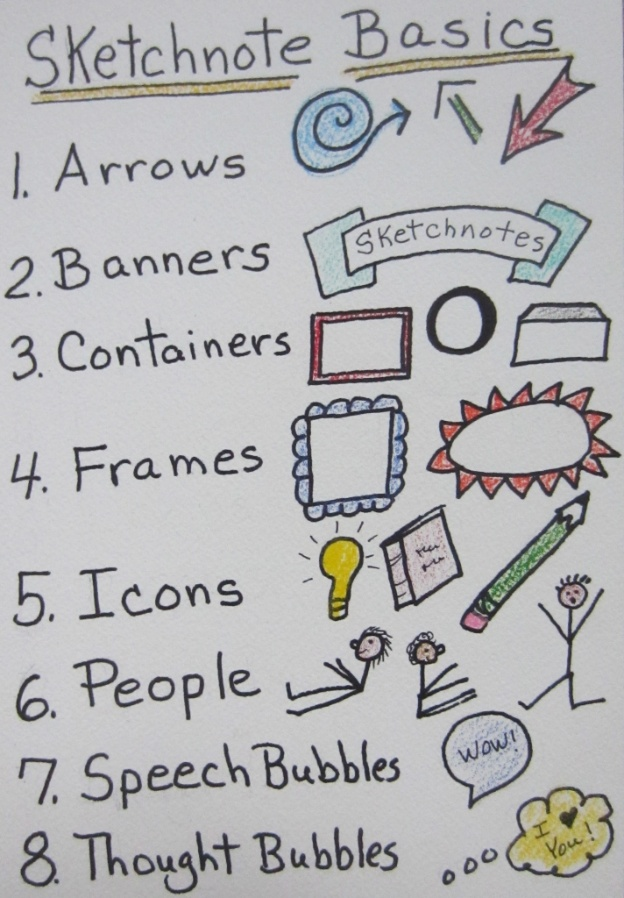 Sketchnote Basics
1. Arrows
2. Banners
Sketchnotes
3. Containers
4. Frames
5. Icons
6. People
7. Speech Bubbles
WOW!
8. Thought Bubbles
I ♥
You!